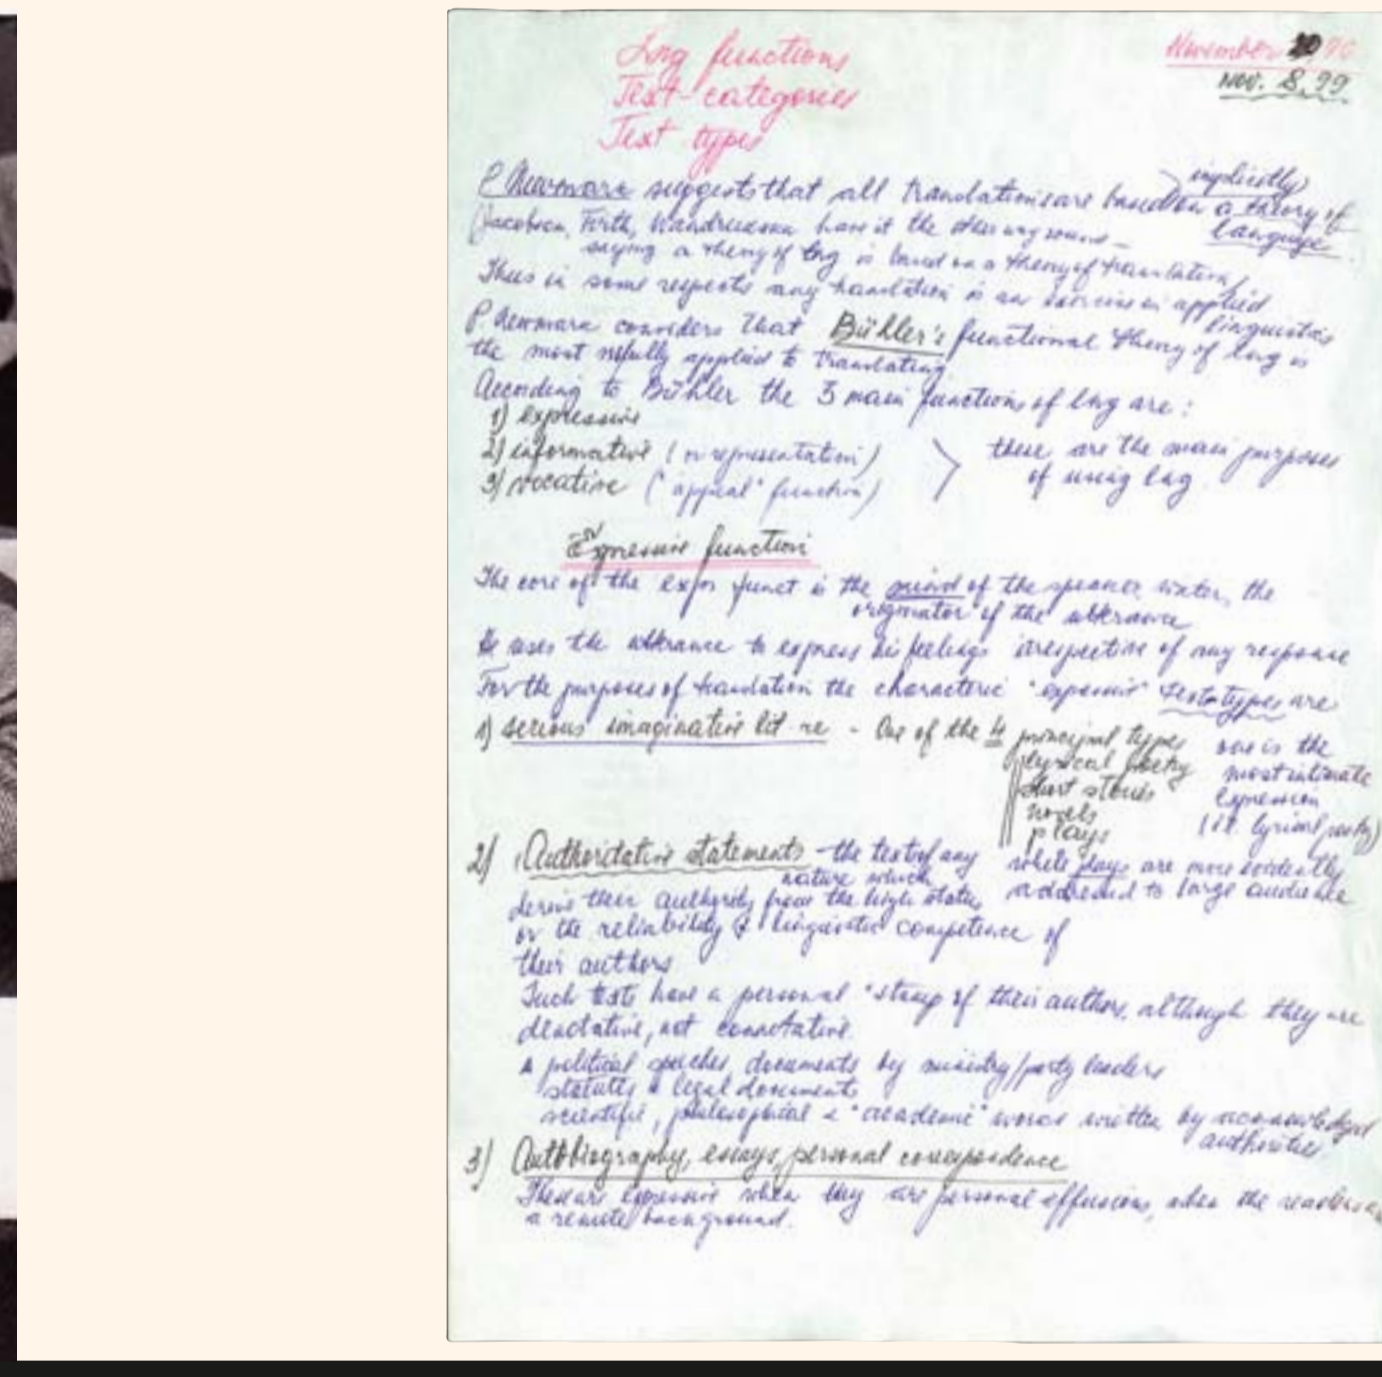 Lng functions
Text-categories
Text types
November 20 90
Nov. 8, 99
P. Newmark suggests that all translations are based on implicitly a theory of language
(Jacobson, Firth, Wandruszka have it the other way round –
saying a theory of lng is based on a theory of translation)
Thus in some respects any translation is an exercise in applied linguistics
P. Newmark considers that Bühler's functional theory of lng is
the most usefully applied to translating
According to Bühler the 3 main functions of lng are:
1) expressive
2) informative (or representation)
3) vocative ("appeal" function)
these are the main purposes
of using lng.
Expressive function
The core of the expr funct is the mind of the speaker, writer, the
originator of the utterance
He uses the utterance to express his feelings irrespective of any response
For the purposes of translation the characteric "expressive" text-types are
1) serious imaginative lit-re - One of the 4 principal types
lyrical poetry
short stories
novels
plays
one is the
most intimate
expression
(lyrical poetry)
while plays are more evidently
addressed to large audience
2) Authoritative statements – the text of any
nature which
derive their authority from the high status
or the reliability & linguistic competence of
their authors
Such texts have a personal "stamp of their authors, although they are
denotative, not connotative.
political speeches, documents by ministry/party leaders
statutes & legal documents
scientific, philosophical & "academic" works written by acknowledged
authorities
3) Autobiography, essays, personal correspondence
These are expressive when they are personal effusions, when the readers are
a remote background.